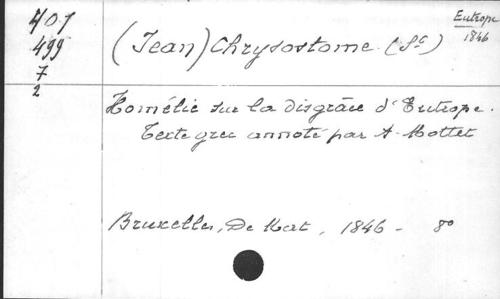 401
499
7
2
Eutrope
1846
(Jean) Chrysostome. (St)
Homélie sur la disgrâce d'Eutrope.
Texte grec annoté par A. Mottet
Bruxelles, De Mat, 1846 - 8°